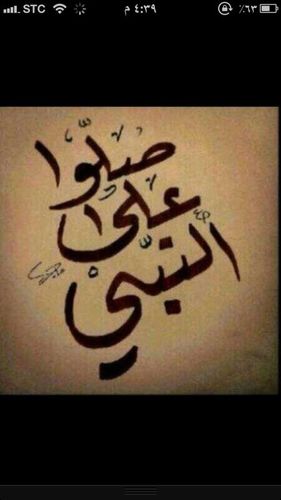 STC ٤:٣٩ م ٪٦٣
صلّوا
على
النبّي